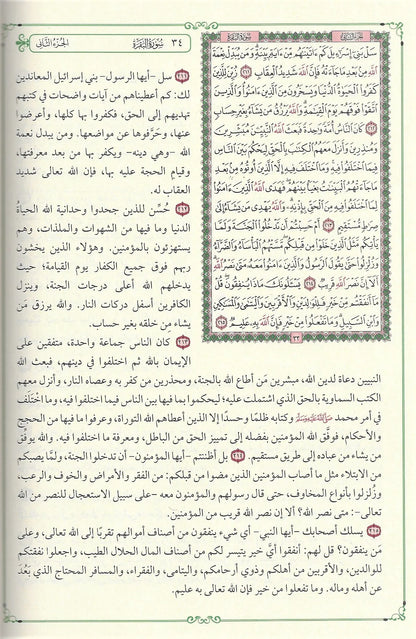 الجزء الثاني
سورة البقرة
٣٤
سورة البقرة
الجزء الثاني
سَلْ بَنِي إِسْرَائِيلَ كَمْ آتَيْنَاهُم مِّنْ آيَةٍ بَيِّنَةٍ وَمَن يُبَدِّلْ نِعْمَةَ
اللَّهِ مِن بَعْدِ مَا جَاءَتْهُ فَإِنَّ اللَّهَ شَدِيدُ الْعِقَابِ ٢١١ زُيِّنَ لِلَّذِينَ
كَفَرُوا الْحَيَاةُ الدُّنْيَا وَيَسْخَرُونَ مِنَ الَّذِينَ آمَنُوا وَالَّذِينَ
اتَّقَوْا فَوْقَهُمْ يَوْمَ الْقِيَامَةِ وَاللَّهُ يَرْزُقُ مَن يَشَاءُ بِغَيْرِ حِسَابٍ
٢١٢ كَانَ النَّاسُ أُمَّةً وَاحِدَةً فَبَعَثَ اللَّهُ النَّبِيِّينَ مُبَشِّرِينَ
وَمُنذِرِينَ وَأَنزَلَ مَعَهُمُ الْكِتَابَ بِالْحَقِّ لِيَحْكُمَ بَيْنَ النَّاسِ
فِيمَا اخْتَلَفُوا فِيهِ وَمَا اخْتَلَفَ فِيهِ إِلَّا الَّذِينَ أُوتُوهُ مِن بَعْدِ
مَا جَاءَتْهُمُ الْبَيِّنَاتُ بَغْيًا بَيْنَهُمْ فَهَدَى اللَّهُ الَّذِينَ آمَنُوا
لِمَا اخْتَلَفُوا فِيهِ مِنَ الْحَقِّ بِإِذْنِهِ وَاللَّهُ يَهْدِي مَن يَشَاءُ إِلَى
صِرَاطٍ مُّسْتَقِيمٍ ٢١٣ أَمْ حَسِبْتُمْ أَن تَدْخُلُوا الْجَنَّةَ وَلَمَّا
يَأْتِكُم مَّثَلُ الَّذِينَ خَلَوْا مِن قَبْلِكُم مَّسَّتْهُمُ الْبَأْسَاءُ وَالضَّرَّاءُ
وَزُلْزِلُوا حَتَّى يَقُولَ الرَّسُولُ وَالَّذِينَ آمَنُوا مَعَهُ مَتَى نَصْرُ اللَّهِ
أَلَا إِنَّ نَصْرَ اللَّهِ قَرِيبٌ ٢١٤ يَسْأَلُونَكَ مَاذَا يُنفِقُونَ قُلْ
مَا أَنفَقْتُم مِّنْ خَيْرٍ فَلِلْوَالِدَيْنِ وَالْأَقْرَبِينَ وَالْيَتَامَى وَالْمَسَاكِينِ
وَابْنِ السَّبِيلِ وَمَا تَفْعَلُوا مِنْ خَيْرٍ فَإِنَّ اللَّهَ بِهِ عَلِيمٌ ٢١٥
٣٣
٢١١ سل -أيها الرسول- بني إسرائيل المعاندين
لك: كم أعطيناهم من آيات واضحات في كتبهم
تهديهم إلى الحق، فكفروا بها كلها، وأعرضوا
عنها، وحرَّفوها عن مواضعها. ومن يبدل نعمة
الله -وهي دينه- ويكفر بها من بعد معرفتها،
وقيام الحجة عليه بها، فإن الله تعالى شديد
العقاب له.
٢١٢ حُسِّن للذين جحدوا وحدانية الله الحياةُ
الدنيا وما فيها من الشهوات والملذات، وهم
يستهزئون بالمؤمنين. وهؤلاء الذين يخشون
ربهم فوق جميع الكفار يوم القيامة؛ حيث
يدخلهم الله أعلى درجات الجنة، وينزل
الكافرين أسفل دركات النار. والله يرزق مَن
يشاء من خلقه بغير حساب.
٢١٣ كان الناس جماعة واحدة، متفقين على
الإيمان بالله ثم اختلفوا في دينهم، فبعث الله
النبيين دعاة لدين الله، مبشرين مَن أطاع الله بالجنة، ومحذرين من كفر به وعصاه النار، وأنزل معهم
الكتب السماوية بالحق الذي اشتملت عليه؛ ليحكموا بما فيها بين الناس فيما اختلفوا فيه، وما اخْتَلَف
في أمر محمد ﷺ وكتابه ظلمًا وحسدًا إلا الذين أعطاهم الله التوراة، وعرفوا ما فيها من الحجج
والأحكام، فوفَّق الله المؤمنين بفضله إلى تمييز الحق من الباطل، ومعرفة ما اختلفوا فيه. والله يوفِّق
من يشاء من عباده إلى طريق مستقيم. ٢١٤ بل أظننتم -أيها المؤمنون- أن تدخلوا الجنة، ولمَّا يصبكم
من الابتلاء مثل ما أصاب المؤمنين الذين مضوا من قبلكم: من الفقر والأمراض والخوف والرعب،
وزُلزلوا بأنواع المخاوف، حتى قال رسولهم والمؤمنون معه -على سبيل الاستعجال للنصر من الله
تعالى-: متى نصر الله؟ ألا إن نصر الله قريب من المؤمنين.
٢١٥ يسألك أصحابك -أيها النبي- أي شيء ينفقون من أصناف أموالهم تقربًا إلى الله تعالى، وعلى
مَن ينفقون؟ قل لهم: أنفقوا أيَّ خير يتيسر لكم من أصناف المال الحلال الطيب، واجعلوا نفقتكم
للوالدين، والأقربين من أهلكم وذوي أرحامكم، واليتامى، والفقراء، والمسافر المحتاج الذي بَعُدَ
عن أهله وماله. وما تفعلوا من خير فإن الله تعالى به عليم.